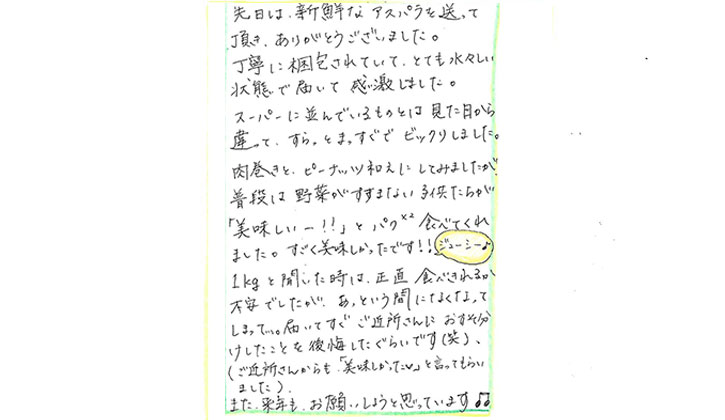 先日は、新鮮なアスパラを送って
頂き、ありがとうございました。
丁寧に梱包されていて、とても水々しい
状態で届いて感激しました。
スーパーに並んでいるものとは見た目から
違って、すらっとまっすぐでビックリしました。
肉巻きと、ピーナッツ和えにしてみましたが、
普段は野菜がすすまない子供たちが
「美味しいー!!」とパク×2 食べてくれ
ました。すごく美味しかったです!! ジューシー♪
1kgと聞いた時は、正直食べきれるか
不安でしたが、あっという間になくなって
しまって…。届いてすぐご近所さんにおすそ分
けしたことを後悔したぐらいです(笑)、
(ご近所さんからも「美味しかった♡」と言ってもらい
ました)。
また、来年も、お願いしようと思っています♫